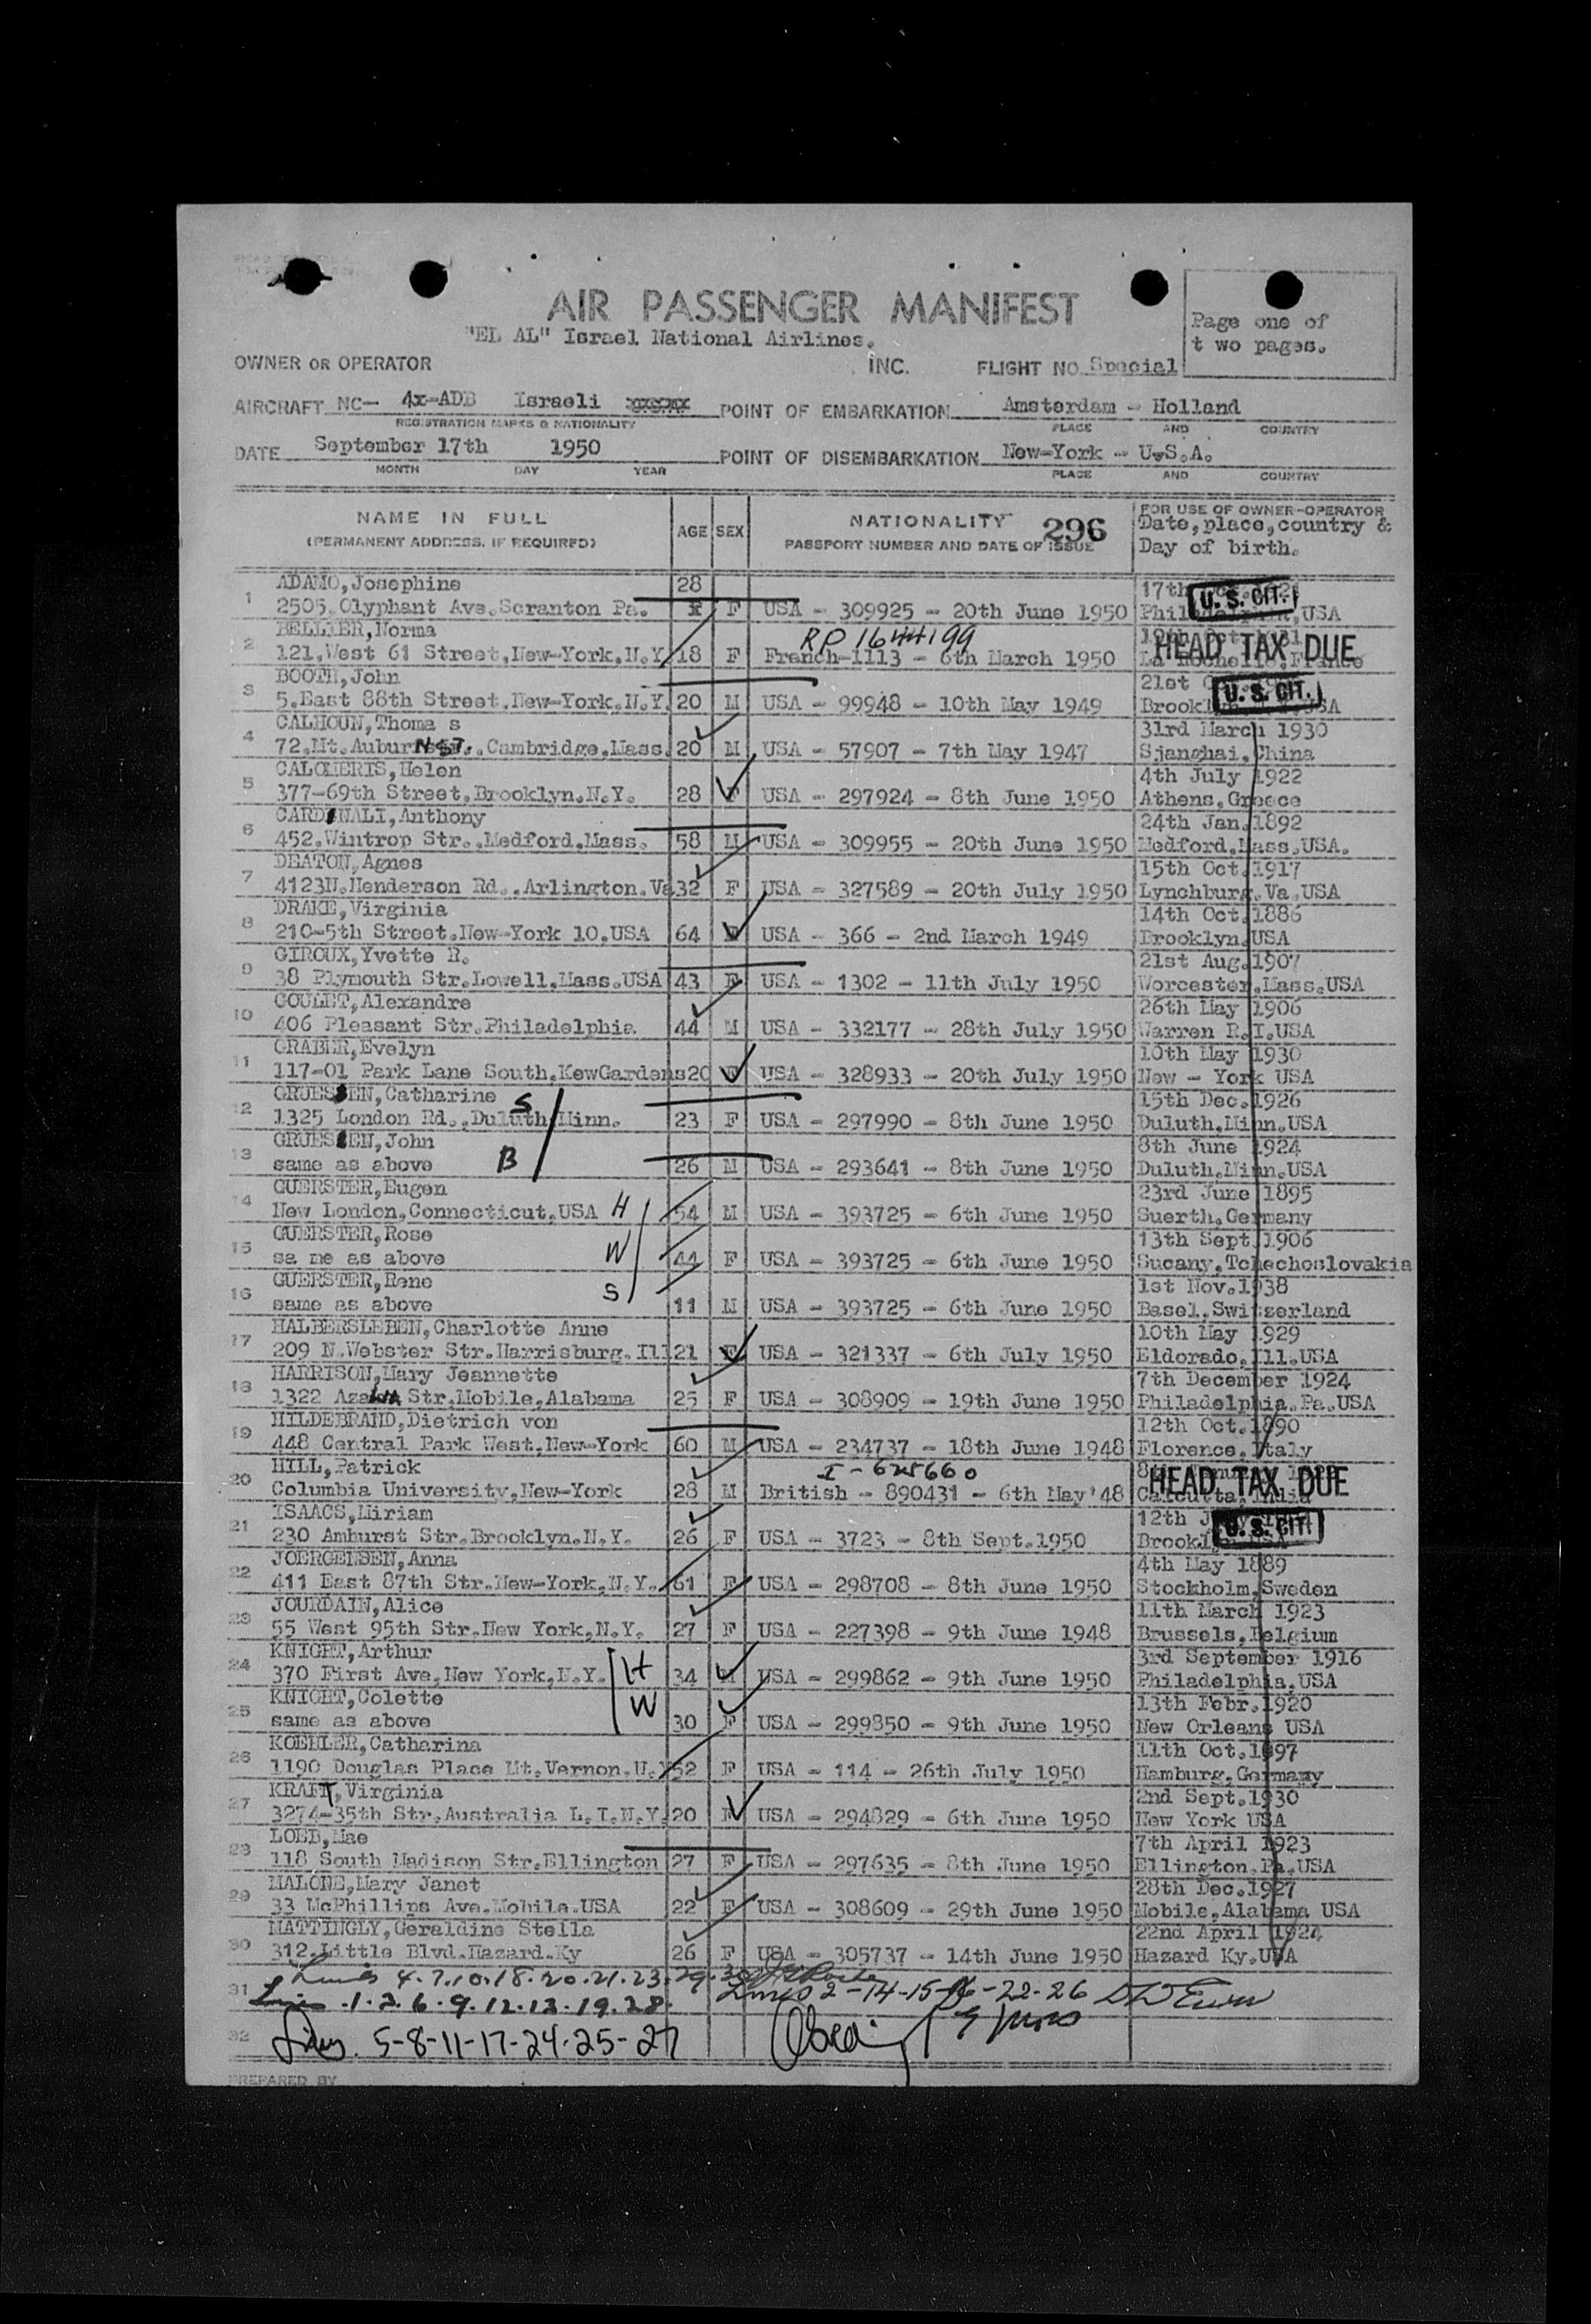 AIR PASSENGER MANIFEST
"EL AL" Israel National Airlines.
Page one of
t wo pages.
OWNER OR OPERATOR INC. FLIGHT NO. Special
AIRCRAFT NC- 4x-ADB Israeli POINT OF EMBARKATION Amsterdam - Holland
REGISTRATION MARKS & NATIONALITY PLACE AND COUNTRY
DATE September 17th 1950 POINT OF DISEMBARKATION New-York - U.S.A.
MONTH DAY YEAR PLACE AND COUNTRY
NAME IN FULL
(PERMANENT ADDRESS, IF REQUIRED)
AGE SEX
NATIONALITY 296
PASSPORT NUMBER AND DATE OF ISSUE
FOR USE OF OWNER-OPERATOR
Date, place, country &
Day of birth.
1 ADAMO, Josephine 28 17th
2505.Olyphant Ave.Scranton Pa. F USA - 309925 - 20th June 1950 USA
U. S. CIT.
2 BELLIER, Norma RP 1644199
121.West 61 Street.New-York.N.Y 18 F French-1113 - 6th March 1950 La Rochelle, France
HEAD TAX DUE
3 BOOTH, John 21st
5.East 88th Street.New-York.N.Y. 20 M USA - 99948 - 10th May 1949
U. S. CIT.
4 CALHOUN, Thoma s 31rd March 1930
72.Mt.Auburn ST..Cambridge.Mass. 20 M USA - 57907 - 7th May 1947 Sjanghai, China
5 CALOMERIS, Helen 4th July 1922
377-69th Street.Brooklyn.N.Y. 28 F USA - 297924 - 8th June 1950 Athens, Greece
6 CARDINALI, Anthony 24th Jan.1892
452.Wintrop Str..Medford.Mass. 58 M USA - 309955 - 20th June 1950 Medford.Mass.USA.
7 DEATON, Agnes 15th Oct.1917
4123N.Henderson Rd..Arlington.Va 32 F USA - 327589 - 20th July 1950 Lynchburg.Va.USA
8 DRAKE, Virginia 14th Oct.1886
210-5th Street.New-York 10.USA 64 F USA - 366 - 2nd March 1949 Brooklyn.USA
9 GIROUX, Yvette R. 21st Aug.1907
38 Plymouth Str.Lowell.Mass.USA 43 F USA - 1302 - 11th July 1950 Worcester.Mass.USA
10 GOULET, Alexandre 26th May 1906
406 Pleasant Str.Philadelphia 44 M USA - 332177 - 28th July 1950 Warren R.I.USA
11 GRABER, Evelyn 10th May 1930
117-01 Park Lane South.KewGardens 20 F USA - 328933 - 20th July 1950 New - York USA
12 GRUESEN, Catharine S 15th Dec.1926
1325 London Rd..Duluth Minn. 23 F USA - 297990 - 8th June 1950 Duluth.Minn.USA
13 GRUESEN, John 8th June 1924
same as above B 26 M USA - 293641 - 8th June 1950 Duluth.Minn.USA
14 GUERSTER, Eugen 23rd June 1895
New London, Connecticut.USA H 54 M USA - 393725 - 6th June 1950 Suerth, Germany
15 GUERSTER, Rose 13th Sept.1906
sa me as above W 44 F USA - 393725 - 6th June 1950 Sucany, Tchechoslovakia
16 GUERSTER, Rene 1st Nov.1938
same as above S 11 M USA - 393725 - 6th June 1950 Basel.Switzerland
17 HALBERSLEBEN, Charlotte Anne 10th May 1929
209 N.Webster Str.Harrisburg.Ill 21 F USA - 321337 - 6th July 1950 Eldorado.Ill.USA
18 HARRISON, Mary Jeannette 7th December 1924
1322 Str.Mobile, Alabama 25 F USA - 308909 - 19th June 1950 Philadelphia.Pa.USA
19 HILDEBRAND, Dietrich von 12th Oct.1890
448 Central Park West.New-York 60 M USA - 234737 - 18th June 1948 Florence.Italy
20 HILL, Patrick I-628660
Columbia University, New-York 28 M British - 890431 - 6th May'48 Calcutta, India
HEAD TAX DUE
21 ISAACS, Miriam 12th
230 Amhurst Str.Brooklyn.N.Y. 26 F USA - 3723 - 8th Sept.1950
U. S. CIT.
22 JOERGENSEN, Anna 4th May 1889
411 East 87th Str.New-York.N.Y. 61 F USA - 298708 - 8th June 1950 Stockholm.Sweden
23 JOURDAIN, Alice 11th March 1923
55 West 95th Str.New York.N.Y. 27 F USA - 227398 - 9th June 1948 Brussels.Belgium
24 KNIGHT, Arthur 3rd September 1916
370 First Ave.New York.N.Y. H 34 M USA - 299862 - 9th June 1950 Philadelphia.USA
25 KNIGHT, Colette W 13th Febr.1920
same as above 30 F USA - 299850 - 9th June 1950 New Orleans USA
26 KOEHLER, Catharina 11th Oct.1897
1190 Douglas Place Mt.Vernon.N.Y 52 F USA - 114 - 26th July 1950 Hamburg.Germany
27 KRAFT, Virginia 2nd Sept.1930
3274-35th Str.Australia L.I.N.Y. 20 F USA - 294829 - 6th June 1950 New York USA
28 LOEB, Mae 7th April 1923
118 South Madison Str.Ellington 27 F USA - 297635 - 8th June 1950 Ellington.Pa.USA
29 MALONE, Mary Janet 28th Dec.1927
33 McPhillips Ave.Mobile.USA 22 F USA - 308609 - 29th June 1950 Mobile, Alabama USA
30 MATTINGLY, Geraldine Stella 22nd April 1924
312.Little Blvd.Hazard.Ky 26 F USA - 305737 - 14th June 1950 Hazard Ky.USA
Lines 4.7.10.18.20.21.23.29.30
31 Lines .1.3.6.9.12.13.19.28. Lines 2-14-15-16-22-26
32 Lines. 5-8-11-17-24-25-27
PREPARED BY